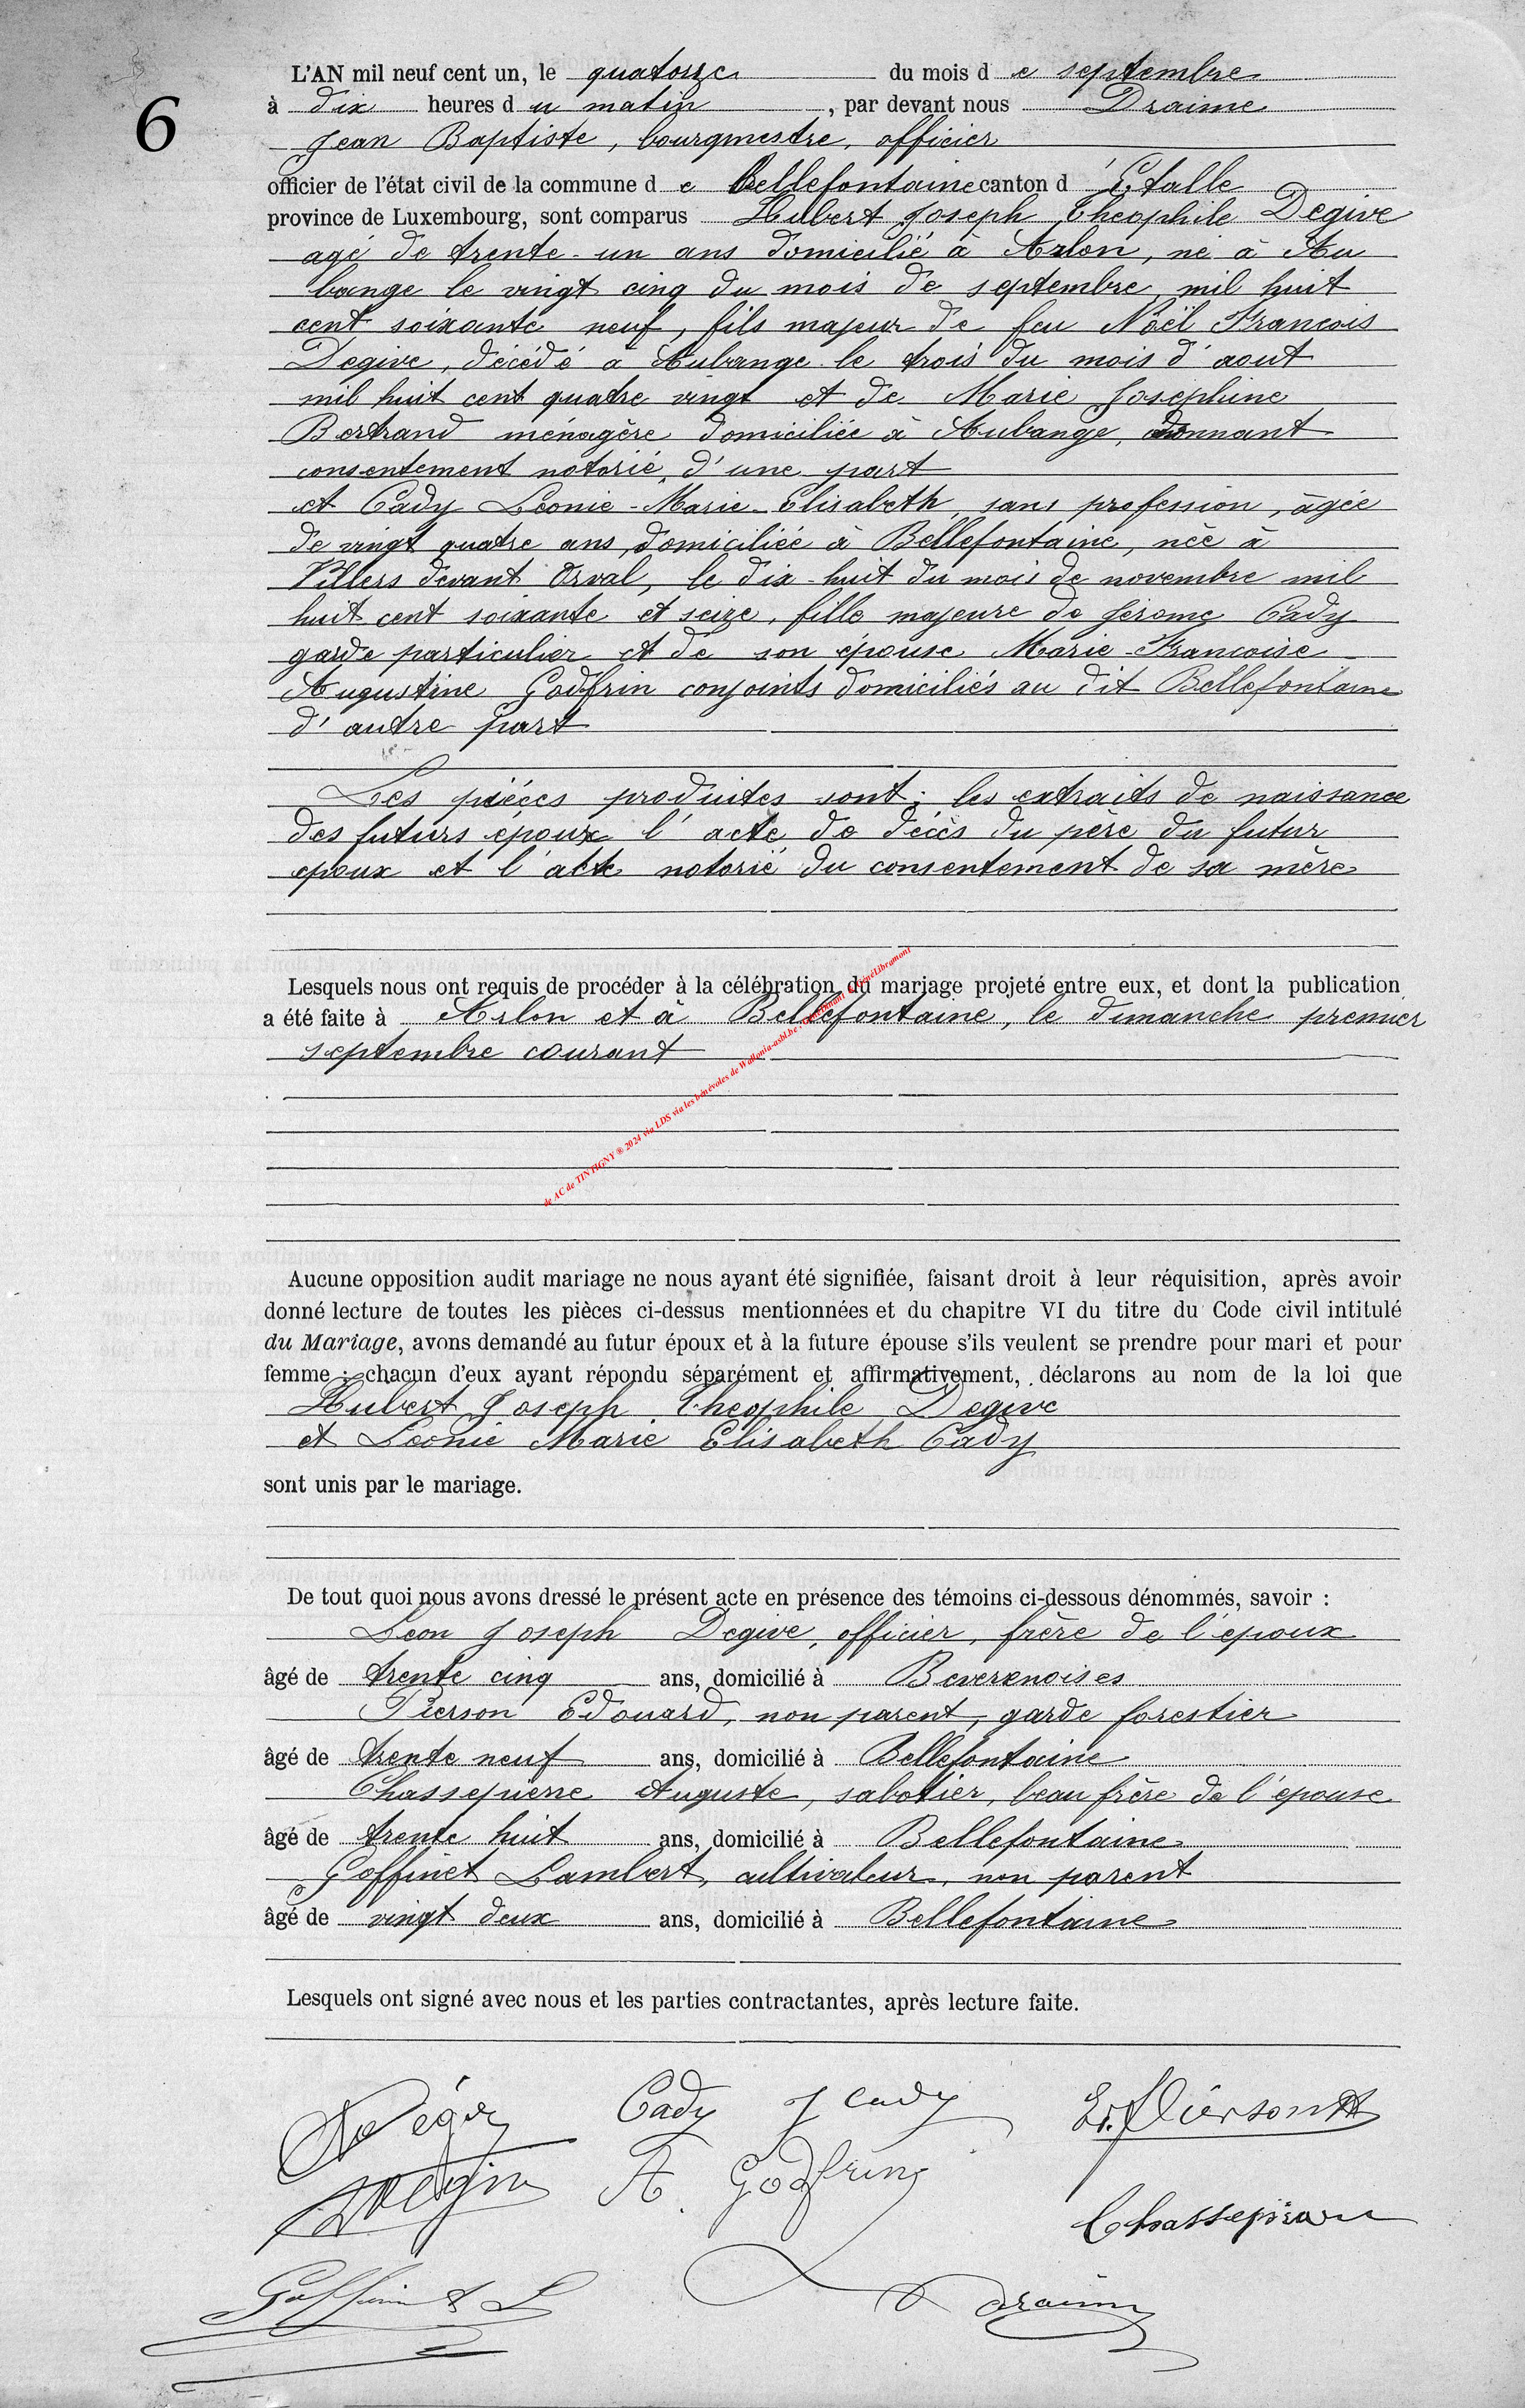 6
L'AN mil neuf cent un, le quatorze du mois d e septembre
à dix heures d u matin, par devant nous Draime
Jean Baptiste, bourgmestre, officier
officier de l'état civil de la commune d e Bellefontaine canton d' Etalle
province de Luxembourg, sont comparus Hubert Joseph Théophile Degive
agé de trente-un ans domicilié à Arlon, né à Au
bange le vingt cinq du mois de septembre mil huit
cent soixante neuf, fils majeur de feu Noël François
Degive, décédé à Aubange le trois du mois d'aout
mil huit cent quatre vingt et de Marie Josephine
Bertrand ménagère domiciliée à Aubange, donnant
consentement notarié, d'une part
et Cady Léonie-Marie-Elisabeth, sans profession, âgée
de vingt quatre ans, domiciliée à Bellefontaine, née à
Villers devant Orval, le dix-huit du mois de novembre mil
huit cent soixante et seize, fille majeure de Jérome Cady
garde particulier et de son épouse Marie-Francoise
Augustine Godfrin conjoints domiciliés au dit Bellefontaine
d'autre part
Les pièces produites sont: les extraits de naissance
des futurs époux l'acte de décès du père du futur
epoux et l'acte notarié du consentement de sa mère
Lesquels nous ont requis de procéder à la célébration du mariage projeté entre eux, et dont la publication
a été faite à Arlon et à Bellefontaine, le dimanche premier
septembre courant
de AC de TINTIGNY ® 2024 via LDS via les bénévoles de Wallonia-asbl.be GénéLibramont
Aucune opposition audit mariage ne nous ayant été signifiée, faisant droit à leur réquisition, après avoir
donné lecture de toutes les pièces ci-dessus mentionnées et du chapitre VI du titre du Code civil intitulé
du Mariage, avons demandé au futur époux et à la future épouse s'ils veulent se prendre pour mari et pour
femme : chacun d'eux ayant répondu séparément et affirmativement, déclarons au nom de la loi que
Hubert Joseph Theophile Degive
et Léonie Marie Elisabeth Cady
sont unis par le mariage.
De tout quoi nous avons dressé le présent acte en présence des témoins ci-dessous dénommés, savoir :
Léon Joseph Degive, officier, frère de l'époux
âgé de trente cinq ans, domicilié à Beverenoises
Pierson Edouard, non parent, garde forestier
âgé de trente neuf ans, domicilié à Bellefontaine
Chassepierre Auguste, sabotier, beau frère de l'épouse
âgé de trente huit ans, domicilié à Bellefontaine
Goffinet Lambert, cultivateur, non parent
âgé de vingt deux ans, domicilié à Bellefontaine
Lesquels ont signé avec nous et les parties contractantes, après lecture faite.
Cady J Cady Ed. Pierson
A. Godfrin
Chassepierre
Goffinet L Draime